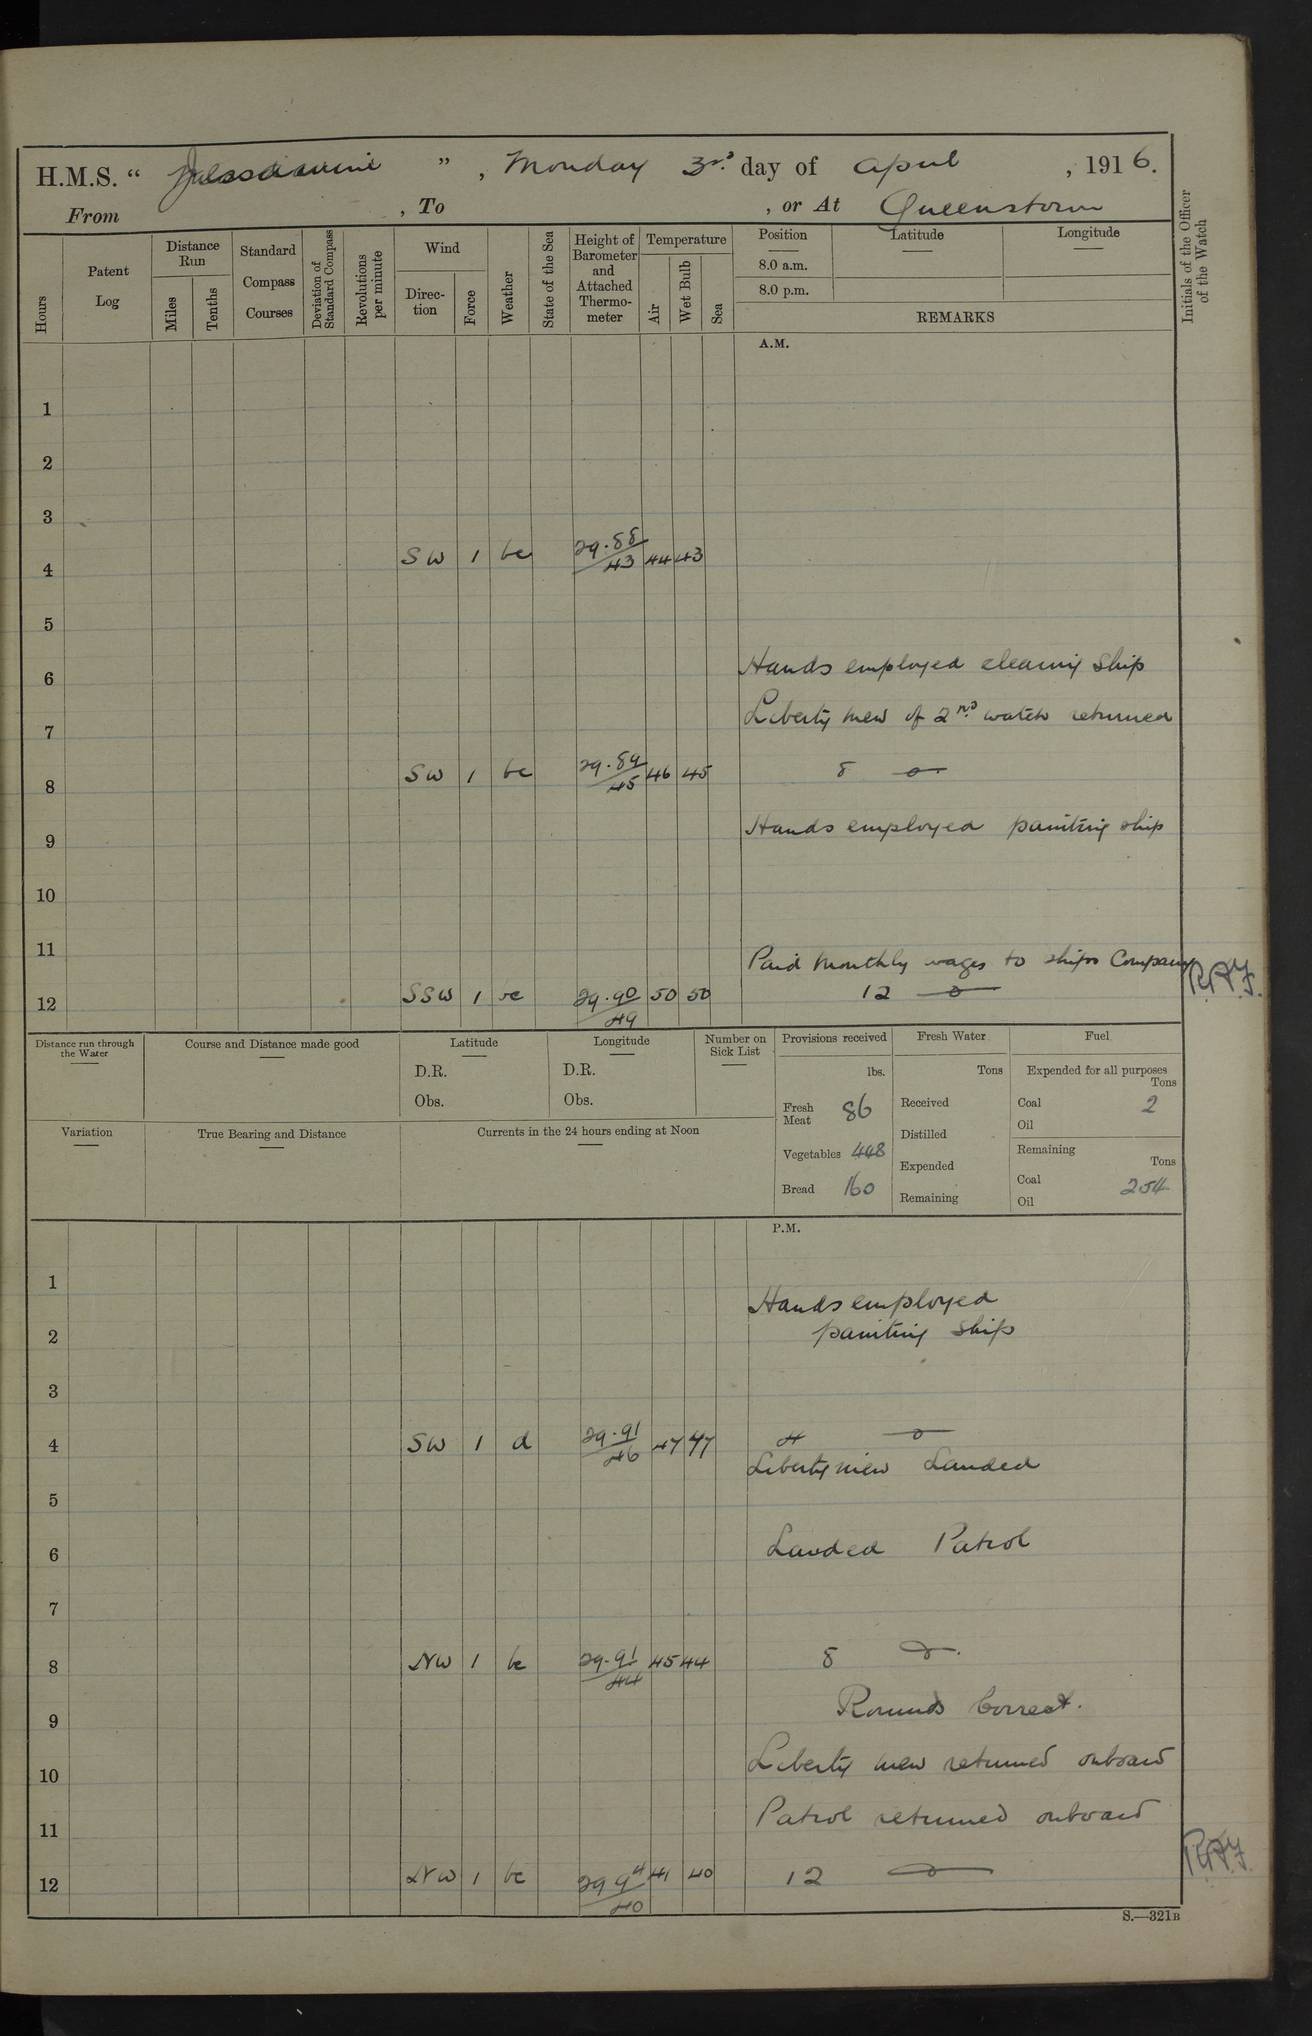 H.M.S. “ Jessamine ” , Monday 3rd day of April , 1916.
From , To , or At Queenstown
Hours
Patent Log
Distance Run
Miles
Tenths
Standard Compass Courses
Deviation of Standard Compass
Revolutions per minute
Wind
Direction
Force
Weather
State of the Sea
Height of Barometer and Attached Thermometer
Temperature
Air
Wet Bulb
Sea
Position
8.0 a.m.
8.0 p.m.
Latitude
Longitude
REMARKS
Initials of the Officer of the Watch
A.M.
1
2
3
4 SW 1 bc 29.88/43 44 43
5
6 Hands employed cleaning ship
7 Liberty men of 2nd watch returned
8 SW 1 bc 29.89/45 46 45 8
9 Hands employed painting ship
10
11 Paid monthly wages to ships Company
12 SSW 1 bc 29.90/49 50 50 12 R.A.F.
Distance run through the Water
Course and Distance made good
Latitude
D.R.
Obs.
Longitude
D.R.
Obs.
Number on Sick List
Provisions received
lbs.
Fresh Meat 86
Vegetables 448
Bread 160
Fresh Water
Tons
Received
Distilled
Expended
Remaining
Fuel
Expended for all purposes
Tons
Coal 2
Oil
Remaining
Tons
Coal 254
Oil
Variation
True Bearing and Distance
Currents in the 24 hours ending at Noon
P.M.
1 Hands employed
2 painting ship
3
4 SW 1 d 29.91/46 47 47 4
Liberty men Landed
5
6 Landed Patrol
7
8 NW 1 bc 29.91/44 45 44 8
9 Rounds Correct.
10 Liberty men returned onboard
11 Patrol returned onboard
12 NW 1 bc 29 94/40 41 40 12 R.A.F.
S.—321B